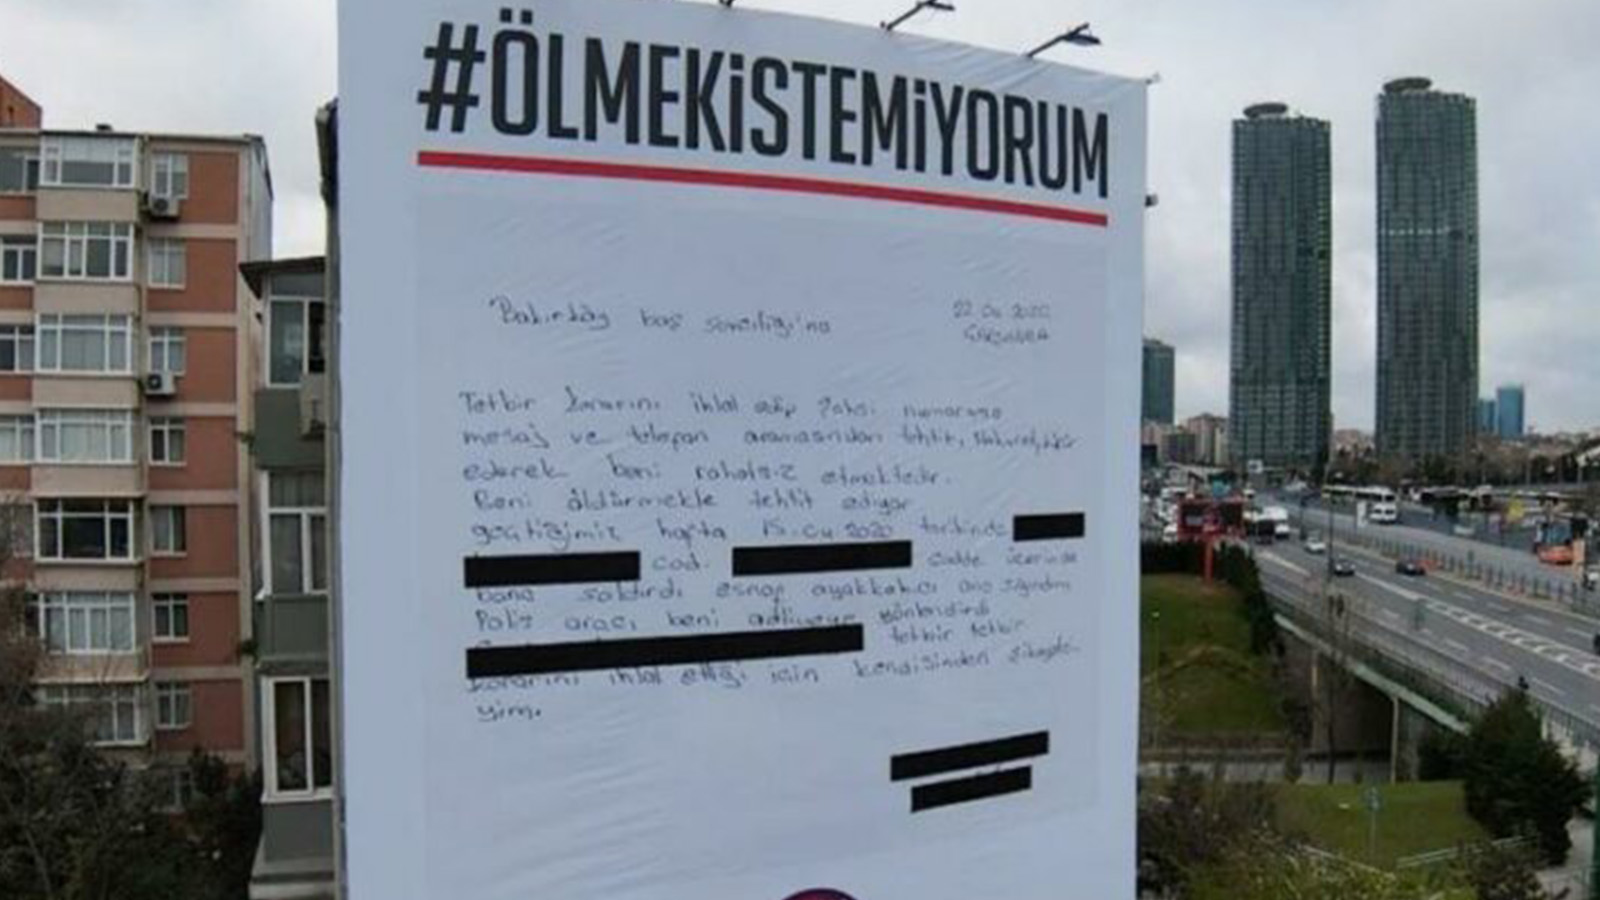 #ÖLMEKİSTEMİYORUM
Bakırköy baş savcılığı'na
22.04.2020
ÇARŞAMBA
Tetbir kararını ihlal edip şahsi numarama
mesaj ve telefon aramasından tehtit, hakaret,
ederek beni rahatsız etmektedir.
Beni öldürmekle tehtit ediyor
geçtiğimiz hafta 15.04.2020 tarihinde
cad. cadde üzerinde
bana saldırdı esnaf ayakkabıcı ona sığındım
Polis aracı beni adliyeye yönlendirdi
tetbir tetbir
kararını ihlal ettiği için kendisinden şikayetçi-
yim.